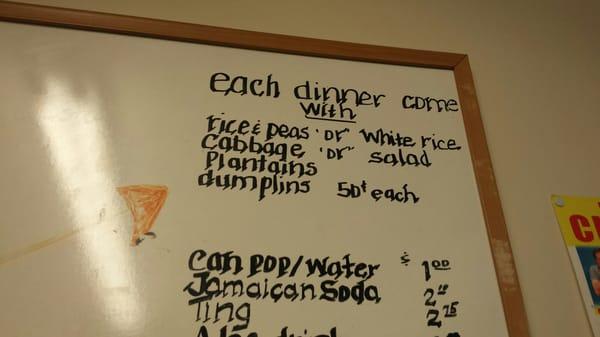 each dinner come
with
rice & peas "or" white rice
Cabbage "or" salad
Plantains
dumplins 50¢ each
Can POP/Water $ 1.00
Jamaican Soda
Ting 2.75